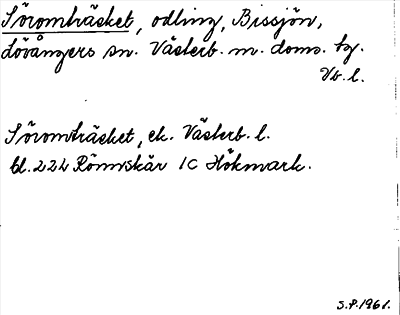 Söromträsket, odling, Bissjön,
Lövångers sn. Västerb. m. doms. bg.
Vb. l.
Söromträsket, ek. Västerb. l.
bl. 224 Rönnskär 1C Hökmark.
S.P. 1961.